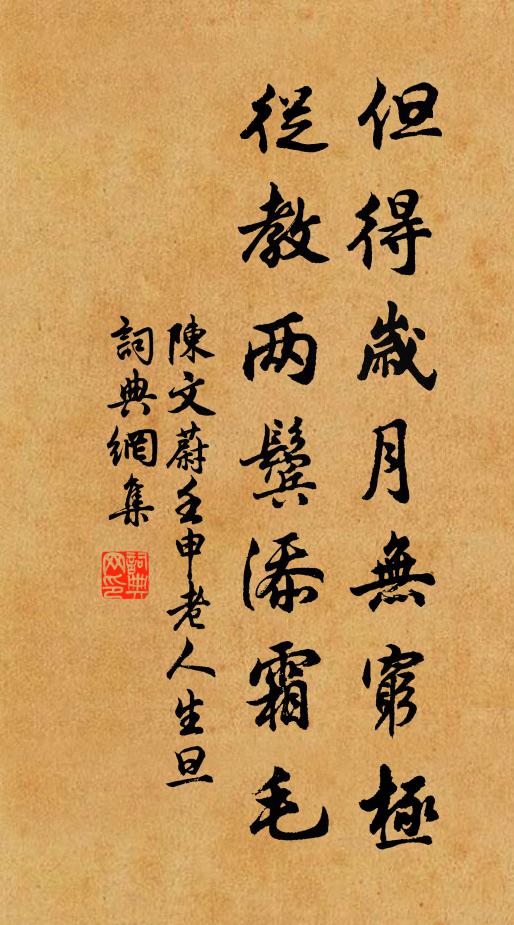 但得歲月無窮極
從教两鬓添霜毛
陳文蔚壬申老人生旦
詞典網集
詞典
网印